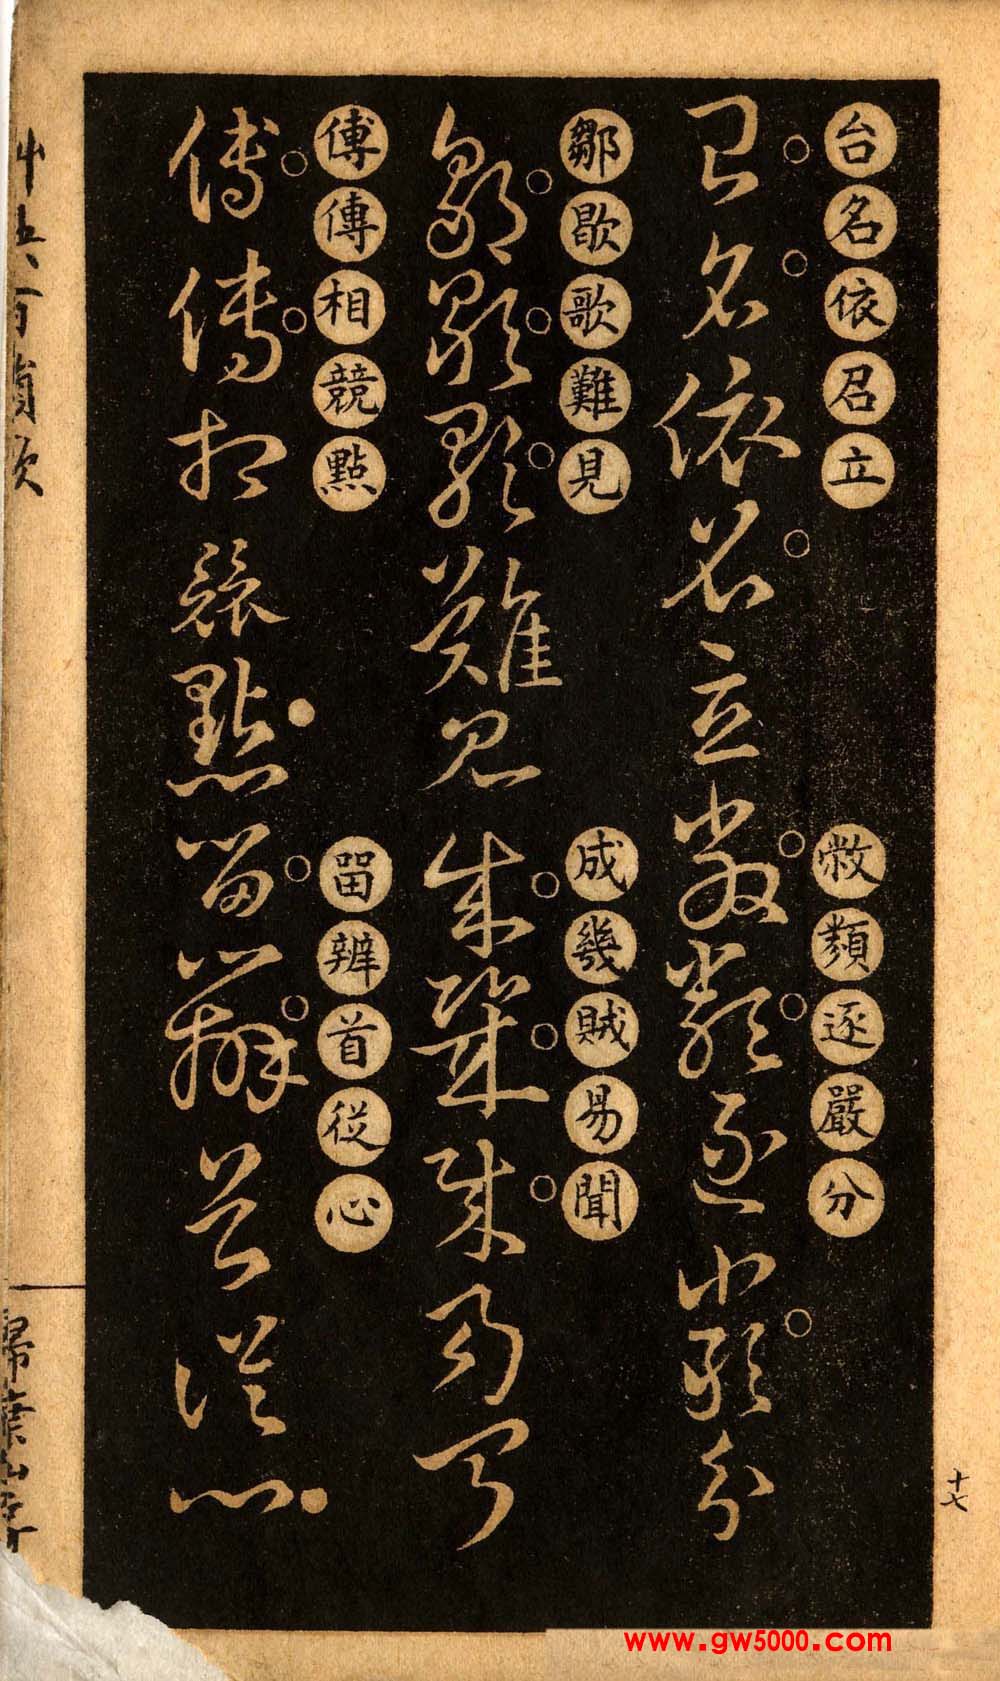 台名依召立
敝類逐嚴分
鄒歇歌難見
成幾賊易聞
傅傳相競點
留辨首從心
十七
www.gw5000.com